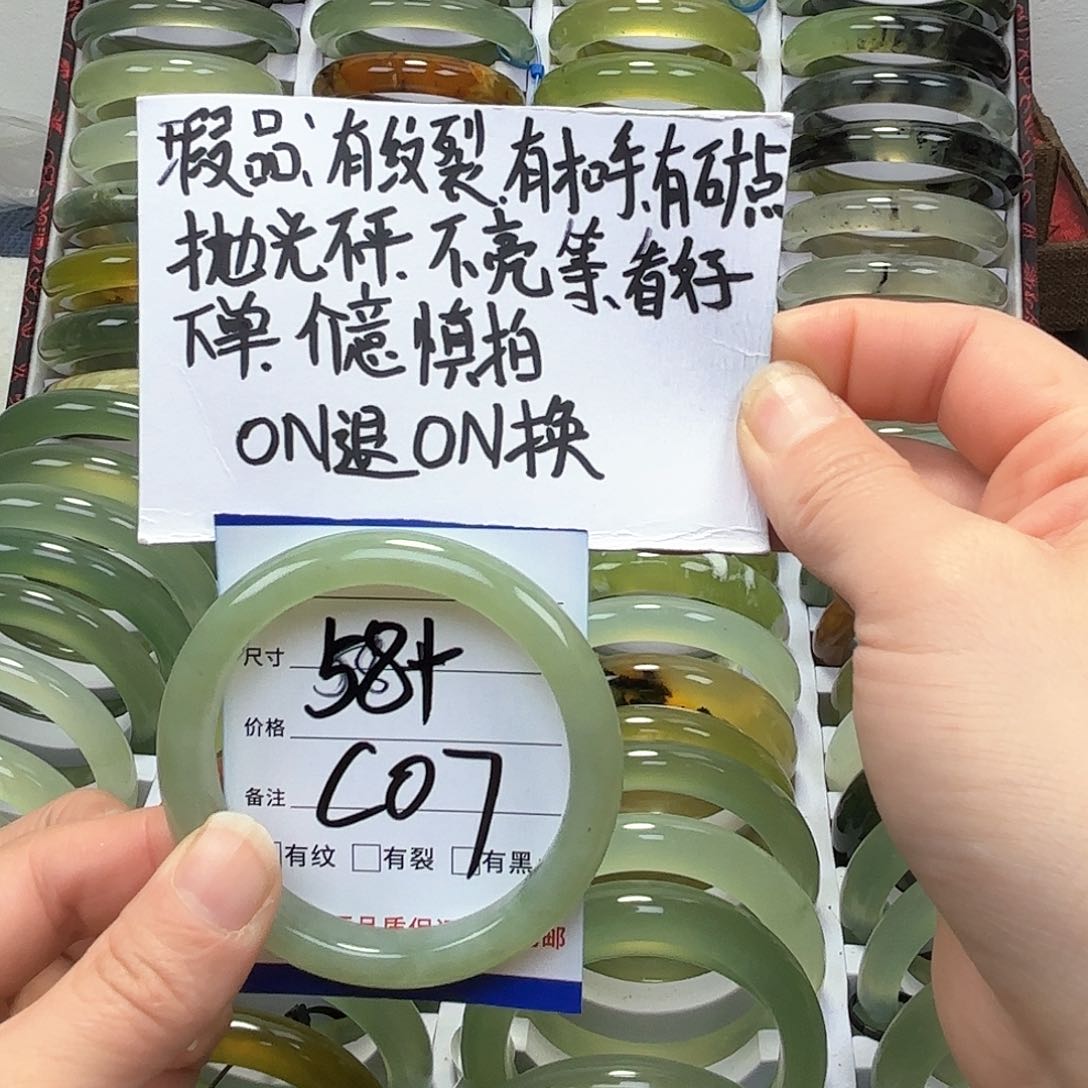 瑕品、有纹裂.有扣手、有矿点
抛光不平.不亮等、看好
下单.介意慎拍
ON退ON换
尺寸 58+
价格
备注 C07
有纹 有裂 有黑
品质保
邮